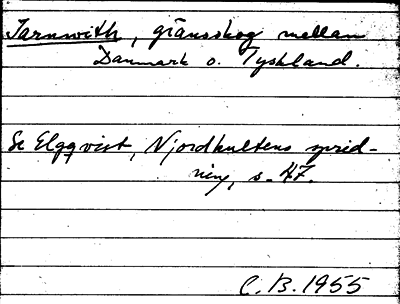 Jarnwith, gränsskog mellan
Danmark o. Tyskland.
Se Elgqvist, Njordkultens sprid-
ning, s. 47.
C.B. 1955